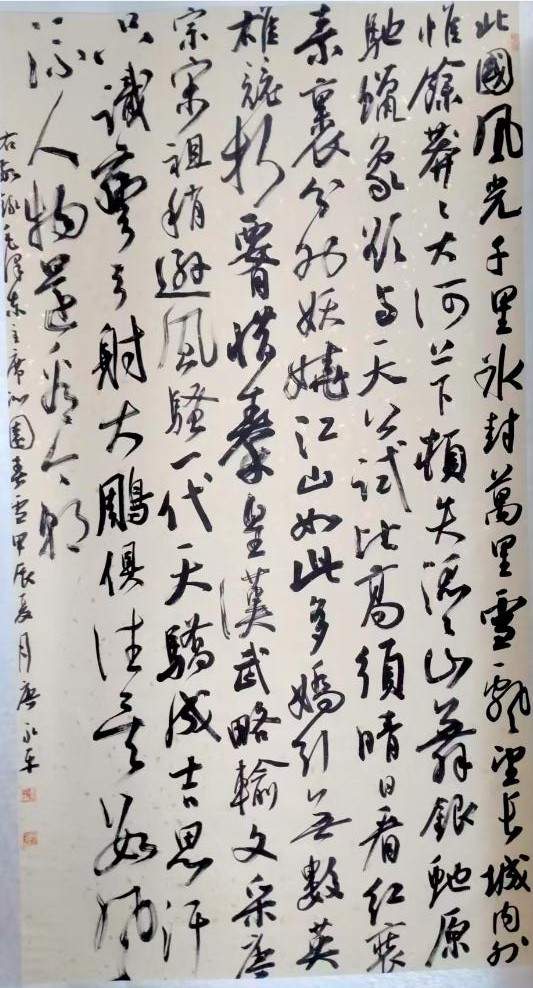 北國風光千里冰封萬里雪飄望長城内外
惟餘莽〻大河上下頓失滔〻山舞銀蛇原
馳蠟象欲與天公試比高須晴日看紅裝
素裹分外妖嬈江山如此多嬌引無數英
雄競折腰惜秦皇漢武略輸文采唐
宗宋祖稍遜風騷一代天驕成吉思汗
只識彎弓射大鵰俱往矣數風
流人物還看今朝
右敬錄毛澤東主席沁園春雪甲辰夏月唐永平